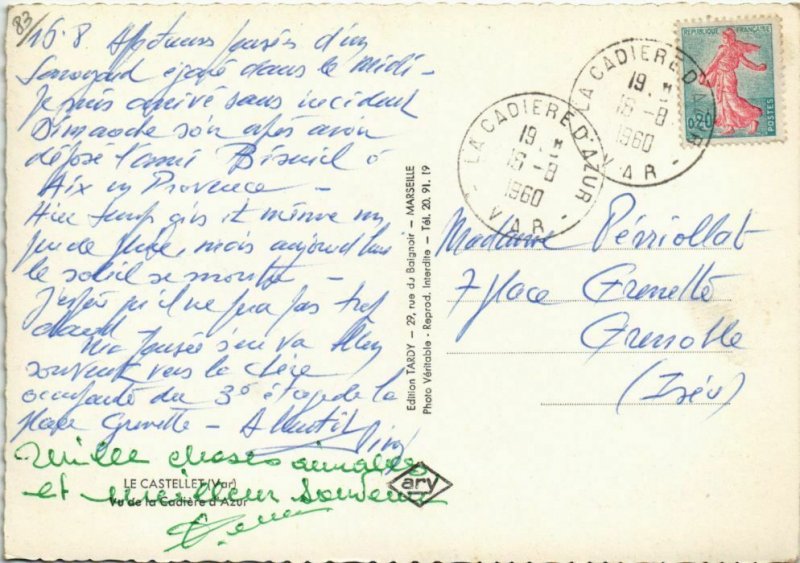 83
16-8 Affectueuses pensées d'un
Savoyard égaré dans le Midi -
Je suis arrivé sans incident
Dimanche soir après avoir
déposé l'ami à
Aix en Provence -
Hier temps gris et même un
peu de pluie, mais aujourd'hui
le soleil se montre -
J'espère qu'il ne fera pas trop
chaud
Ma pensée s'en va
souvent vers la chère
occupante du 3e étage de la
place Grenette -
Mille choses aimables
et meilleur souvenir
LE CASTELLET (Var)
Vu de la Cadière d'Azur
ary
Edition TARDY — 29, rue du Baignoir — MARSEILLE
Photo Véritable - Reprod. Interdite - Tél. 20. 91. 19
LA CADIERE D'AZUR
19 H
16-8
1960
- VAR -
LA CADIERE D'AZUR
19 H
16-8
1960
VAR -
REPUBLIQUE FRANÇAISE
0,20
POSTES
Madame Périollat
7 place Grenette
Grenoble
(Isère)